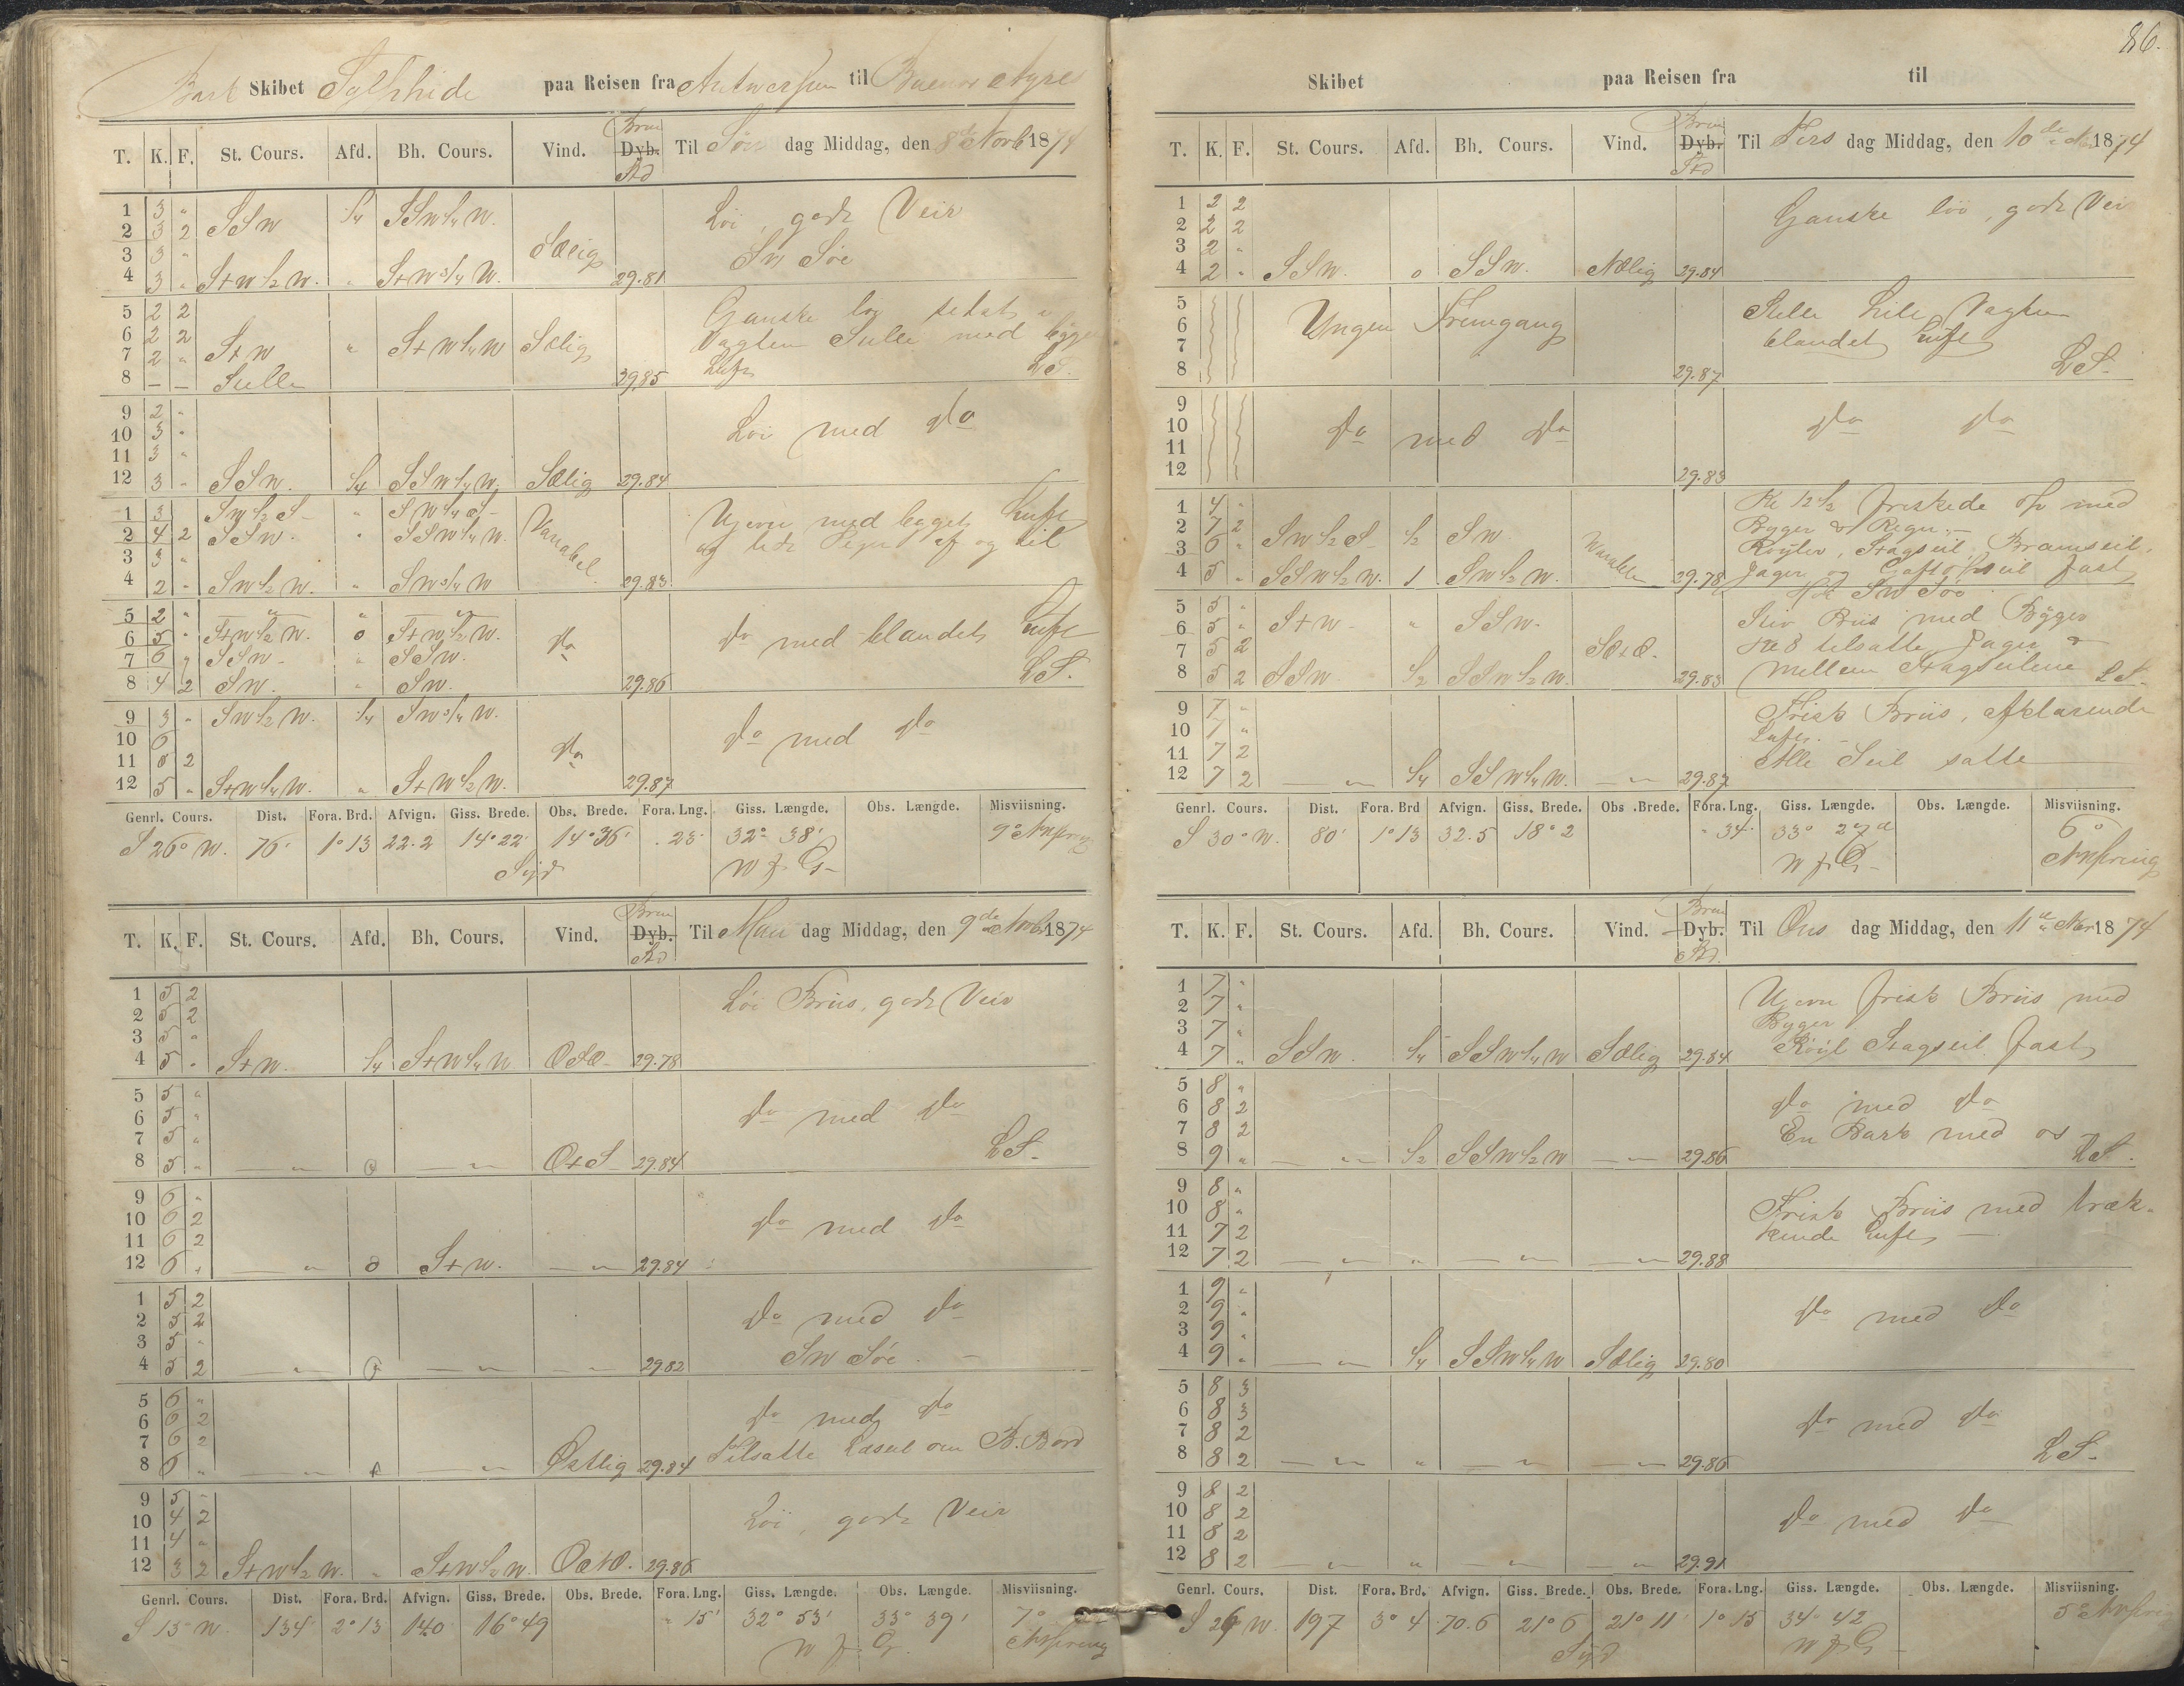 Bark Skibet Sylphide paa Reisen fra Antwerpen til Buenos Ayres
T. K. F. St. Cours. Afd. Bh. Cours. Vind. Dyb. Til Søn dag Middag, den 8de Novb 1874
1 3 " SSW 1/4 SSW 1/4 W. Løi, godt Veir
2 3 2
3 3 " Sælig SW Søe
4 3 " S+W 1/2 W. " S+W 3/4 W. 29.81
5 2 2 Ganske
6 2 2 Vagten Stille med
7 2 " S+W " S+W 1/4 W Sælig Luft
8 — — Stille 29.85 LS.
9 2 "
10 3 " Løi med do
11 3 "
12 3 " SSW. 1/4 SSW 1/4 W. Sælig 29.84
1 3 SW 1/2 S " SW 1/4 S Variabel
2 4 2 SSW. " SSW 1/4 W. Ujevn med Luft
3 3 " og af og til
4 2 " SW 1/2 W. " SW 3/4 W 29.83
5 2 " " " "
6 5 " S+W 1/2 W. 0 S+W 1/2 W. do do med blandet Luft
7 6 " SSW " SSW.
8 4 2 SW. " SW. 29.86 LS.
9 3 " SW 1/2 W. 1/4 SW 3/4 W.
10 6 do do med do
11 6 2
12 5 " S+W 1/4 W. " S+W 1/2 W. 29.87
Genrl. Cours. Dist. Fora. Brd. Afvign. Giss. Brede. Obs. Brede. Fora. Lng. Giss. Længde. Obs. Længde. Misviisning.
S 26° W. 76' 1°13 22.2 14°22' 14°36' . 23' 32° 38' 9° NVstring
Syd W f G
T. K. F. St. Cours. Afd. Bh. Cours. Vind. Dyb. Til Man dag Middag, den 9de Novb 1874
1 5 2 Løi Briis, godt Veir
2 5 2
3 5 "
4 5 " S+W. 1/4 S+W 1/4 W OSO 29.78
5 5 "
6 5 " do med do
7 5 "
8 5 " — " 0 — " O+S 29.84 LS.
9 6 "
10 6 2 do med do
11 6 2
12 6 + — " 0 S+W. — " 29.84
1 5 2
2 5 2 do med do
3 5 "
4 5 2 — " — " — " 29.82 SW Søe
5 6 "
6 6 2 do med do
7 6 2
8 6 " — " — " Østlig 29.84 Tilsatte Læseil om B. Bord
9 5 "
10 4 2 Løi, godt Veir
11 4 "
12 3 2 S+W 1/2 W. " S+W 1/2 W. 29.86
Genrl. Cours. Dist. Fora. Brd. Afvign. Giss. Brede. Obs. Brede. Fora. Lng. Giss. Længde. Obs. Længde. Misviisning.
S 15° W. 134' 2°13 140 16°49 " 15' 32° 53' 33° 39' 7°
W f G
86.
Skibet paa Reisen fra til
T. K. F. St. Cours. Afd. Bh. Cours. Vind. Dyb. Til Tirs dag Middag, den 10de Nov 1874
1 2 2 Ganske løi, godt Veir
2 2 2
3 2 "
4 2 " SSW. 0 SSW. Nælig 29.84
5 Stille hele Vagten
6 Yngen Fremgang blandet Luft
7
8 29.87 LS.
9
10 do med do do do
11
12 29.83
1 4 " Kl 12 1/2 friskede op med
2 7 2 Byger & Regn.
3 6 " SW 1/2 S 1/2 SW. Røyler, Stagseil, Bramseil,
4 5 " SSW 1/2 W. 1 SW 1/2 W. 29.78 Jager og Gaftopseil fast
Hol SW Søe
5 5 " Stiv Briis med Byger
6 5 " S+W " SSW. Kl 8 tilsatte Jager &
7 5 2 SO+O.
8 5 2 SSW 1/2 SSW 1/2 W. 29.83 Mellem Stagseilene LS.
9 7 " Frisk Briis, afklarende
10 7 " Luft.
11 7 2 Alle Seil satte
12 7 2 — " 1/4 SSW 1/4 W. — " 29.87
Genrl. Cours. Dist. Fora. Brd Afvign. Giss. Brede. Obs .Brede. Fora. Lng. Giss. Længde. Obs. Længde. Misviisning.
S 30° W. 80' 1°13 32.5 18°2 " 34' 33° 27' 6°
W f G
T. K. F. St. Cours. Afd. Bh. Cours. Vind. Dyb. Til Ons dag Middag, den 11te Nov 1874
1 7 " Ujevn frisk Briis med
2 7 " Byger
3 7 " Røyl Stagseil fast
4 7 " SSW. 1/4 SSW 1/4 W Sælig 29.84
5 8 "
6 8 2 do med do
7 8 2 En Bark med os
8 9 " — " 1/2 SSW 1/2 W — " 29.86 LS.
9 8 "
10 8 " Frisk Briis med træk-
11 7 2 kende Luft
12 7 2 — " " — " — " 29.88
1 9 "
2 9 " do med do
3 9 "
4 9 " — " 1/4 SSW 1/4 W Sælig 29.80
5 8 3
6 8 3 do med do
7 8 2
8 8 2 — " " — " — " 29.86 LS.
9 8 2
10 8 2 do med do
11 8 2
12 8 2 — " " — " — " 29.91
Genrl. Cours. Dist. Fora. Brd. Afvign. Giss. Brede. Obs. Brede. Fora. Lng. Giss. Længde. Obs. Længde. Misviisning.
S 26 W. 197 3°4 70.6 21°6 21°11' 1°15 34° 42
Syd W f G